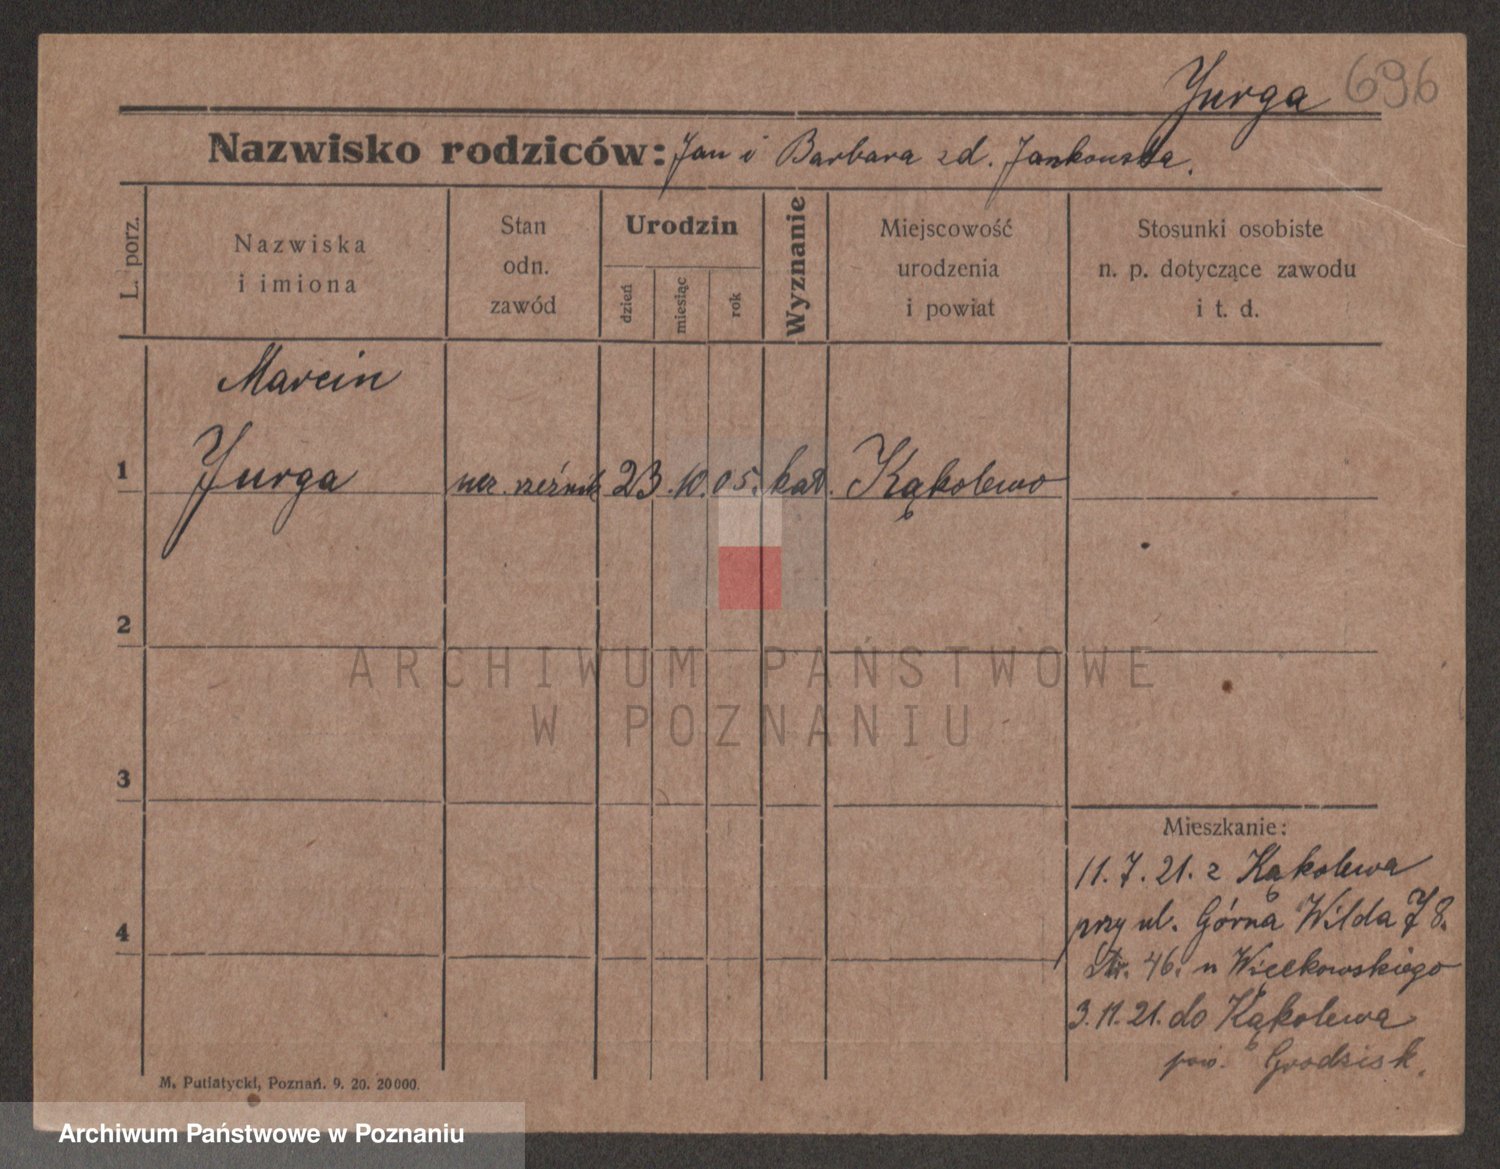 Jurga 696
Nazwisko rodziców: Jan i Barbara zd. Jankowska.
L. porz.
Nazwiska
i imiona
Stan
odn.
zawód
Urodzin
dzień
miesiąc
rok
Wyznanie
Miejscowość
urodzenia
i powiat
Stosunki osobiste
n. p. dotyczące zawodu
i t. d.
Marcin
1 Jurga ucz. rzeźnik 23. 10. 05. kat. Kąkolewo
2
ARCHIWUM PAŃSTWOWE
W POZNANIU
3
Mieszkanie:
11. 7. 21. z Kąkolewa
4 przy ul. Górna Wilda 78.
46. u Więckowskiego
3. 11. 21. do Kąkolewa
pow. Grodzisk.
M. Putiatycki, Poznań. 9. 20. 20000.
Archiwum Państwowe w Poznaniu